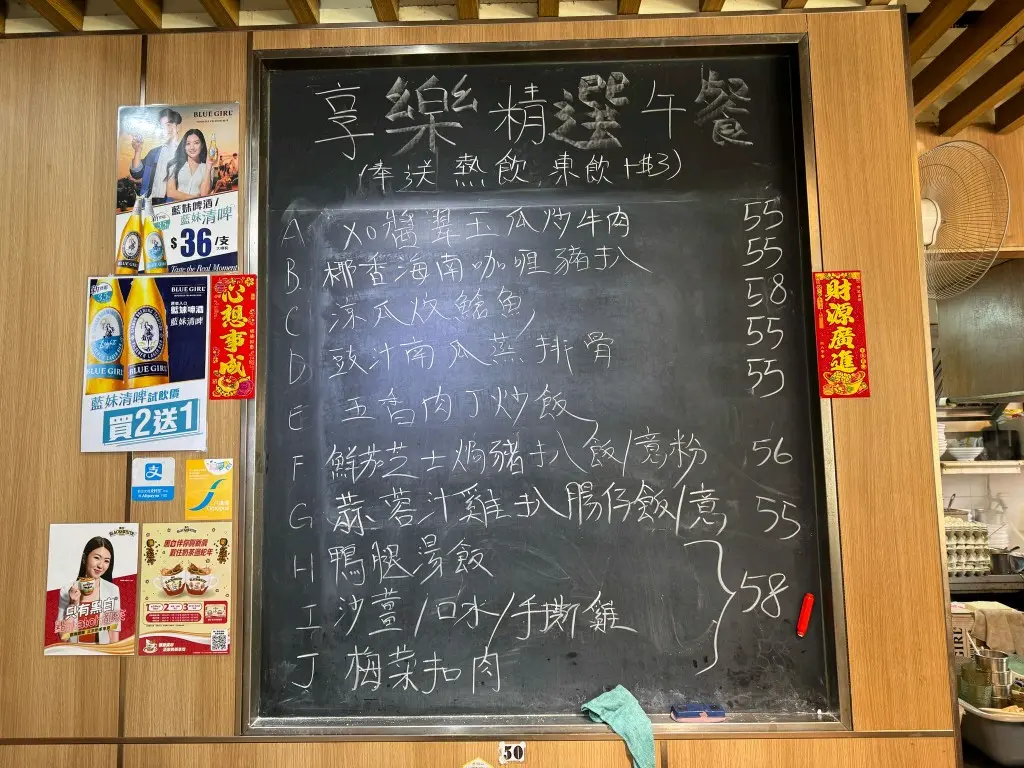 享樂精選午餐
(奉送熱飲,凍飲+$3)
A XO醬翠玉瓜炒牛肉 55
B 椰香海南咖喱豬扒 55
C 涼瓜炆鱠魚 58
D 豉汁南瓜蒸排骨 55
E 五香肉丁炒飯 55
F 鮮茄芝士焗豬扒飯/意粉 56
G 蒜蓉汁雞扒腸仔飯/意 55
H 鴨腿湯飯
I 沙薑/口水/手撕雞 58
J 梅菜扣肉
BLUE GIRL
藍妹啤酒/
藍妹清啤
$36/支
Taste the Real Moment
BLUE GIRL
藍妹啤酒
藍妹清啤
BLUE GIRL
BLUE GIRL
藍妹清啤試飲價
買2送1
心想事成
財源廣進
只有黑白
50